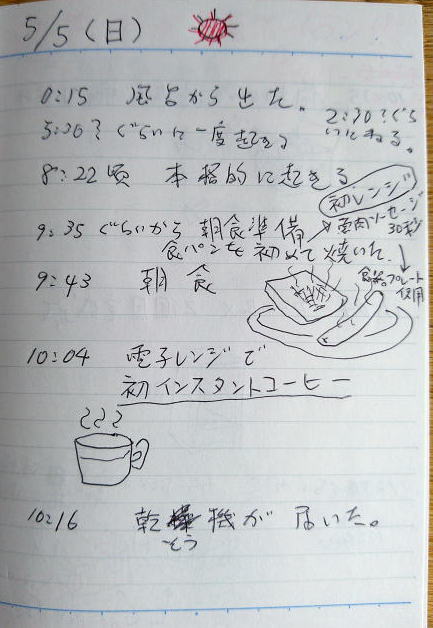 5/5(日)
0:15 風呂から出た。
2:30?ぐらいにねる。
5:20?ぐらいに一度起きる
8:22頃 本格的に起きる
初レンジ
魚肉ソーセージ
30秒
9:35ぐらいから 朝食準備
食パンを初めて焼いた。
9:43 朝食
プレート
使用
10:04 電子レンジで
初インスタントコーヒー
10:16 乾 機が届いた。
そう